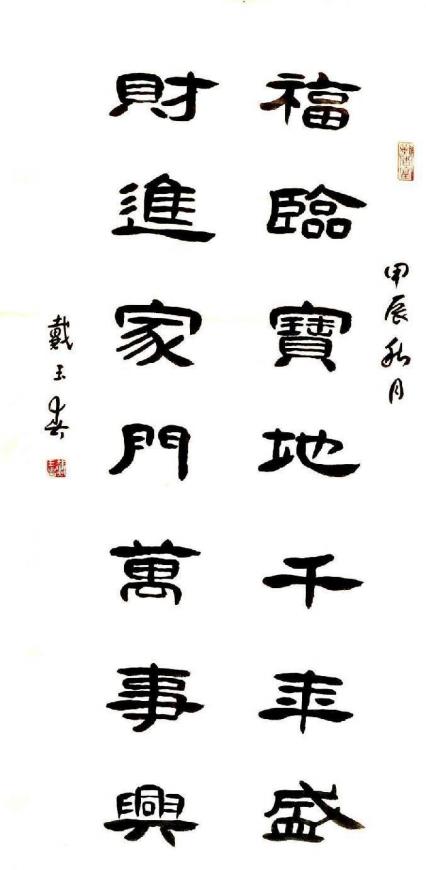 甲辰秋月
福臨寶地千年盛
財進家門萬事興
戴玉春